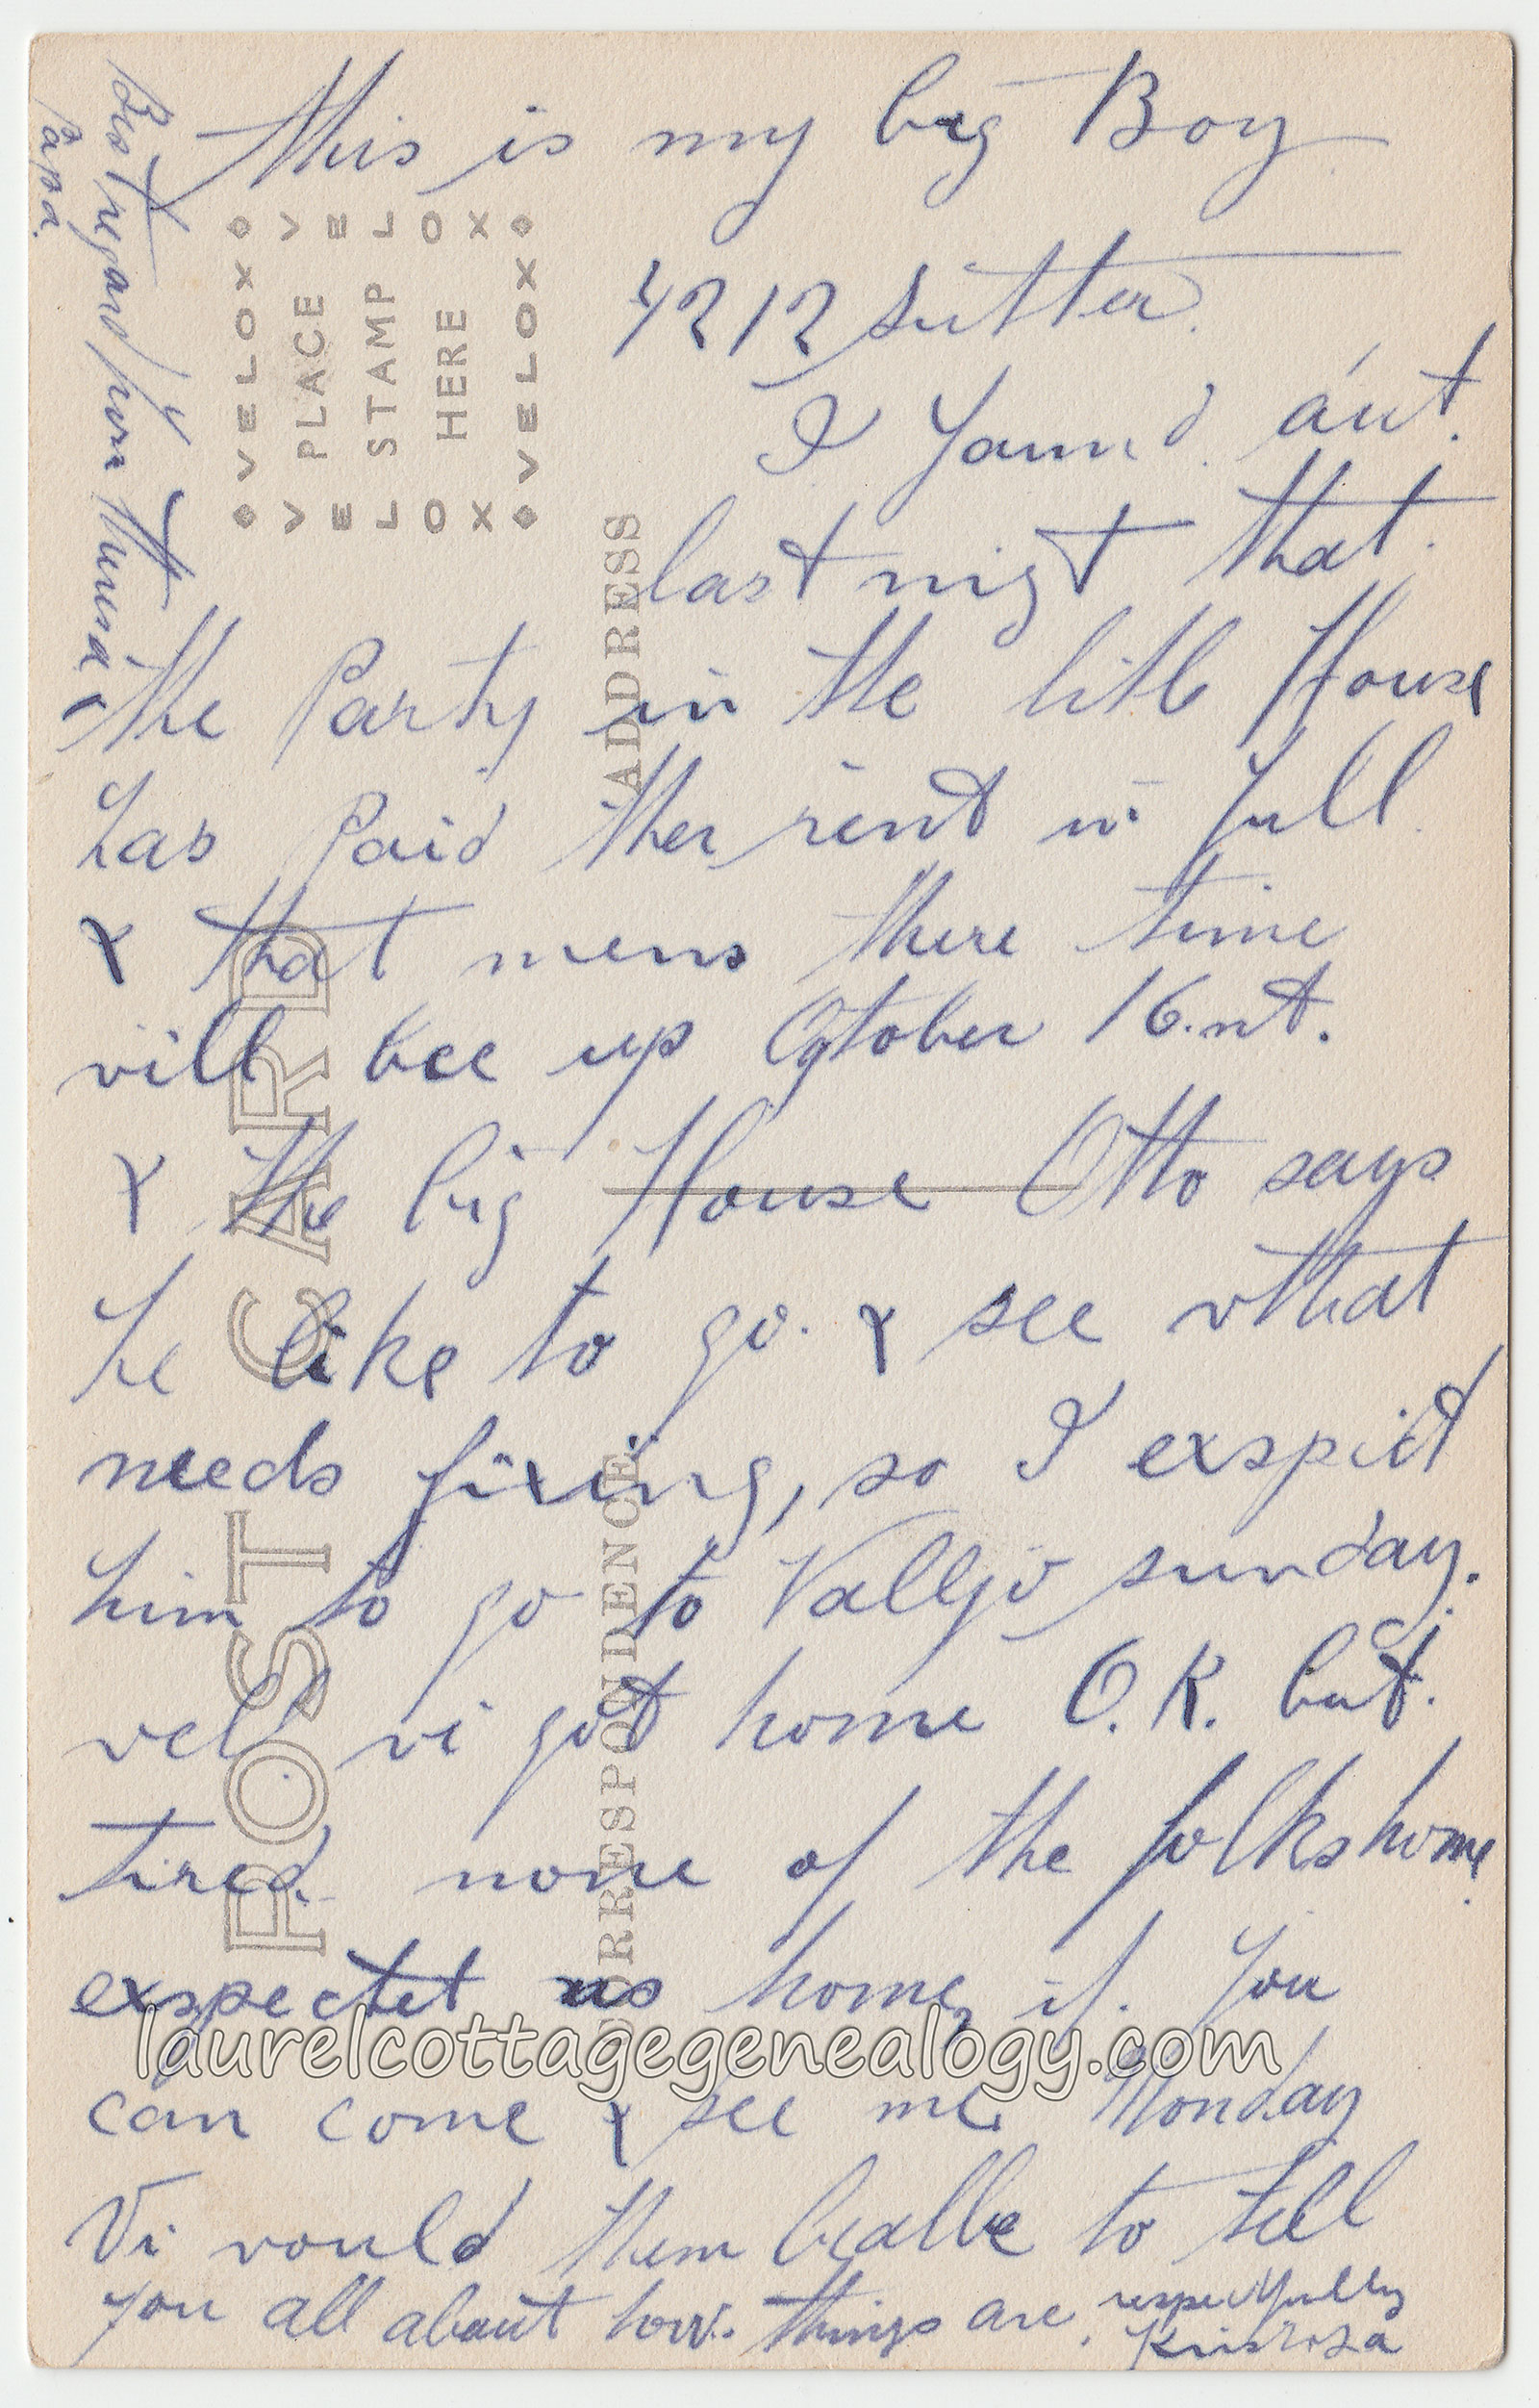 this is my big Boy
4212 Sutter.
I Found out.
last nigt that.
the Party in the litle House
has Paid ther rent in full.
& that mens there time
vill bee up October 16.nt.
& the big House Otto says
he like to go. & see vhat
needs fixing, so I exspect
him to go to Valljo sunday.
vell vi got home O.K. but.
tired. none of the folks home.
exspectet us home, if. you
can come & see me Monday
Vi vould them bealbe to tell
you all about how. things are.
respectfully
Best regard from
Papa.
PLACE
STAMP
HERE
VELOX
VELOX
VELOX
VELOX
ADDRESS
POST CARD
CORRESPONDENCE
laurelcottagegenealogy.com